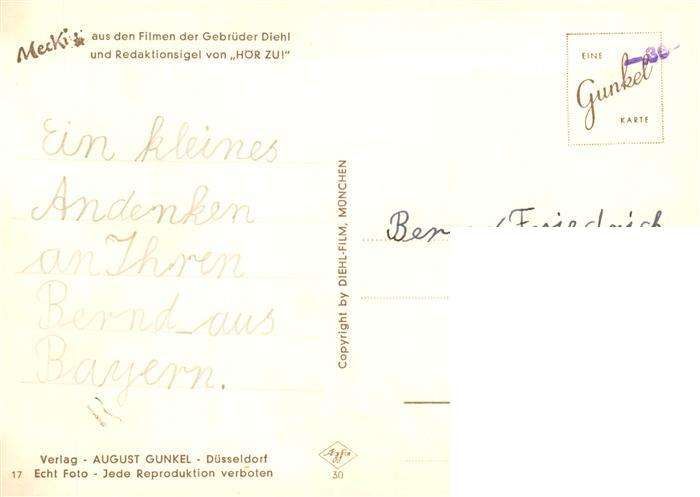 Mecki aus den Filmen der Gebrüder Diehl
und Redaktionsigel von „HÖR ZU!"
EINE
30
Gunkel
KARTE
Ein kleines
Andenken
an Ihren
Bernd aus
Bayern.
Copyright by DIEHL-FILM, MÜNCHEN
Friedrich
Verlag - AUGUST GUNKEL - Düsseldorf
17 Echt Foto - Jede Reproduktion verboten
Agfa
30